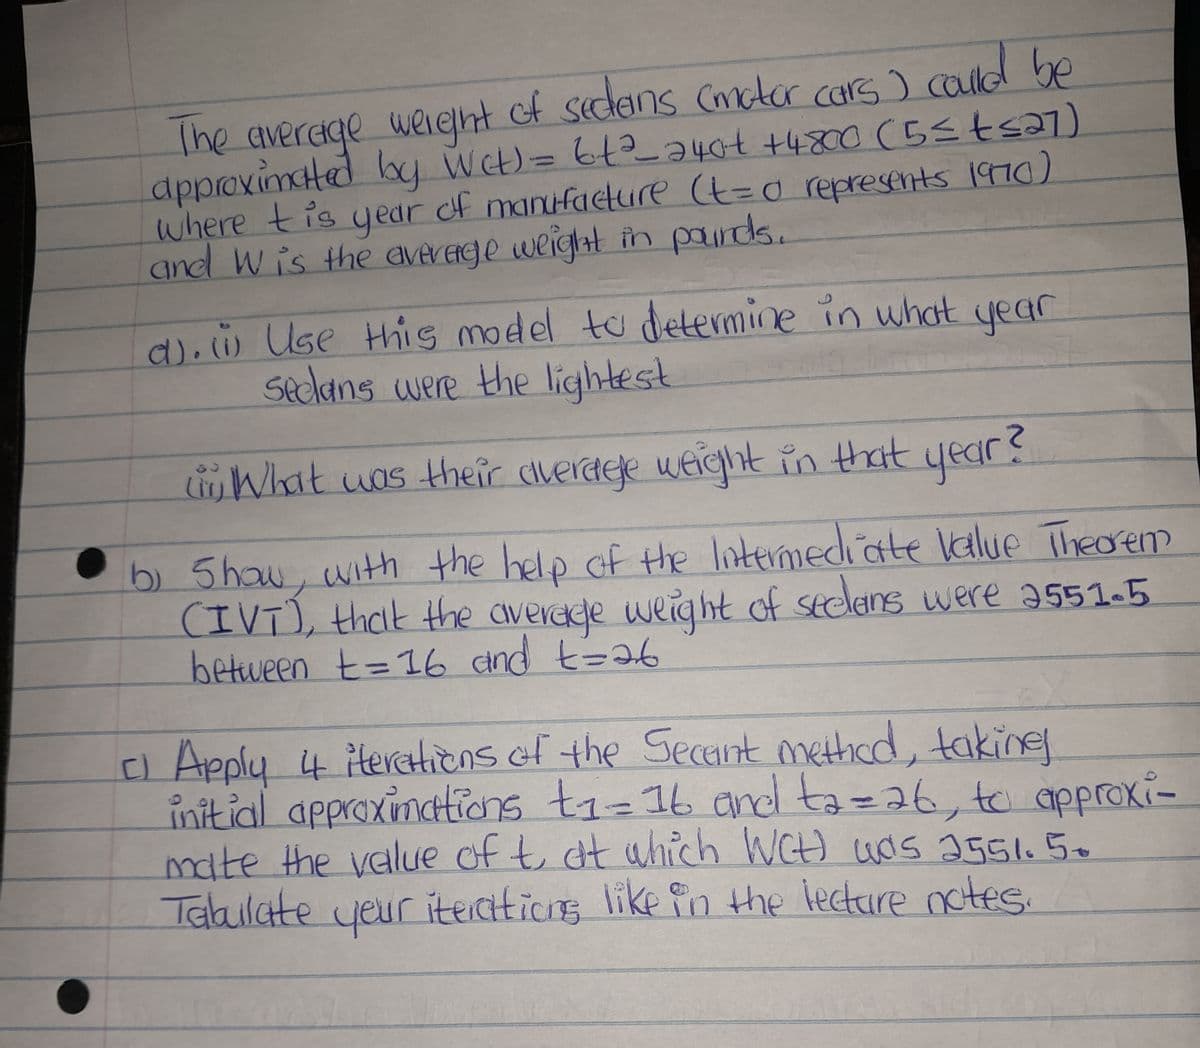 The average weight of sedans (motor cars) could be
approximated by W(t) = 6t² - 240t + 4800 (5 ≤ t ≤ 27)
where t is year of manufacture (t=0 represents 1970)
and W is the average weight in pounds.
a). (i) Use this model to determine in what year
sedans were the lightest
(ii) What was their average weight in that year?
b) Show, with the help of the Intermediate Value Theorem
(IVT), that the average weight of sedans were 2551.5
between t=16 and t=26
c) Apply 4 iterations of the Secant method, taking
initial approximations t1=16 and t2=26, to approxi-
mate the value of t, at which W(t) was 2551.5.
Tabulate your iterations like in the lecture notes.